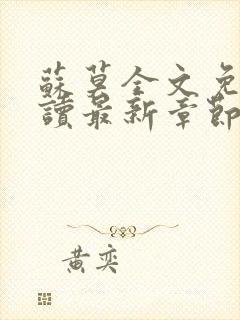 蘇莫全文免
讀最新章節
黃奕